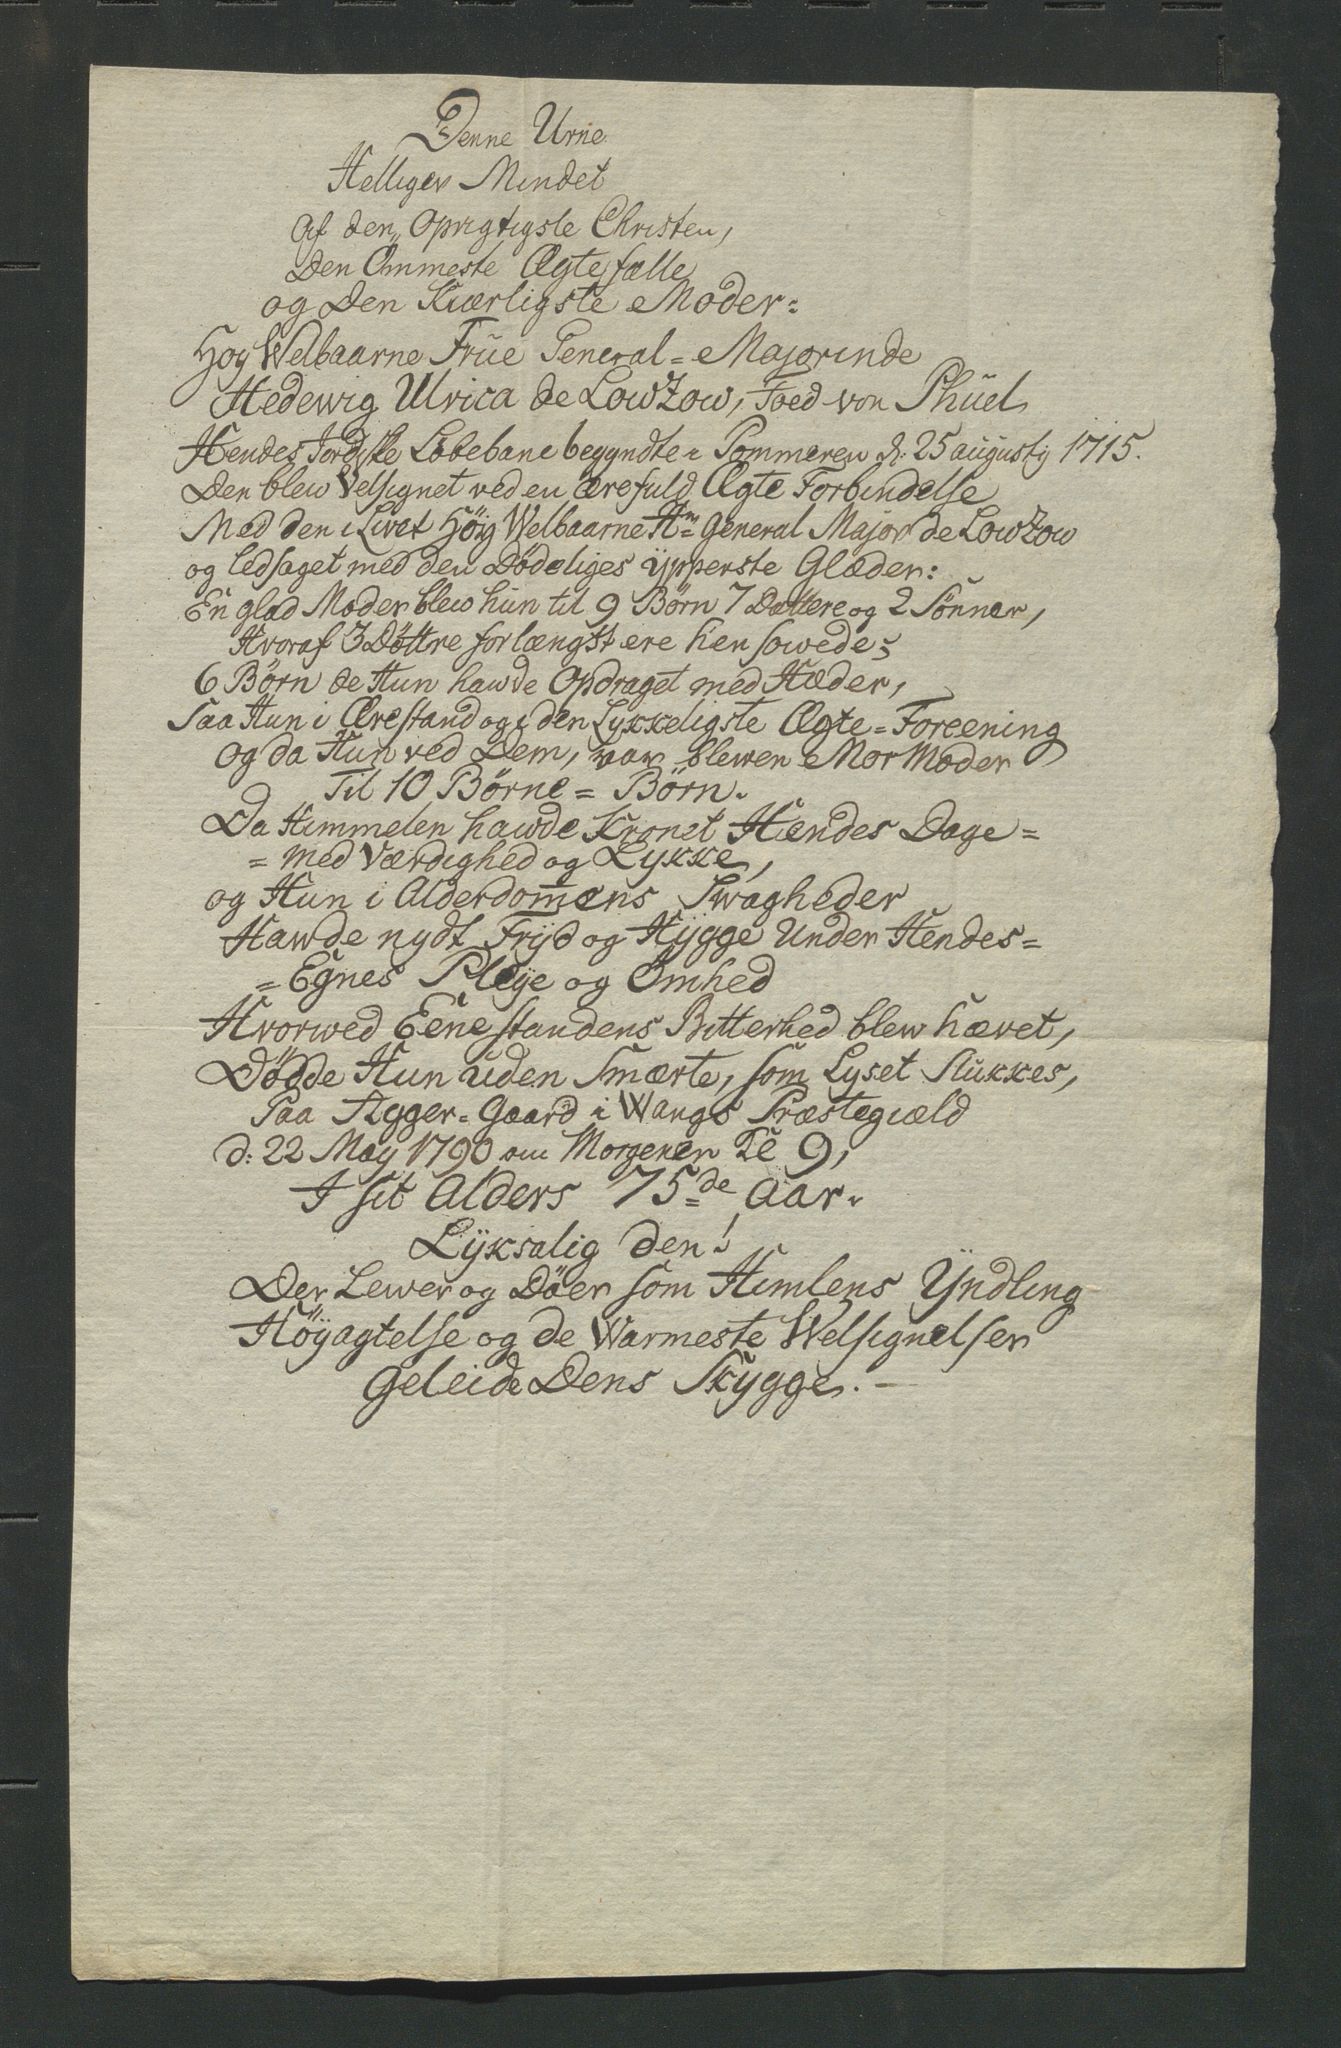 Denne Urne
Helliger Mindet
Af den Oprigtigste Christen,
Den Ömmeste Ægtefælle
og Den Kiærligste Moder:
Høy Welbaarne Früe General=Majorinde
Hedewig Ulrica de LowZow, Foed von Phüel
Hendes Jordiske Löbebane begyndte i Pommeren d: 25 augustij 1715.
Den blew Velsignet ved en ærefuld Ægte Forbindelse
Med den i Livet Höy Welbaarne Hr General Major de LowZow
og ledsaget med den Dödeliges ypperste Glæder:
En glad Moder blew hun til 9 Börn 7 Döttere og 2 Sönner,
Hvoraf 3 Döttre forlængst ere hensowede;
6 Börn de Hun hawde Opdraget med Hæder,
Saa Hun i Ærestand og i den Lykkeligste Ægte=Foreening
og da Hun ved Dem, var blewen Mor Moder
Til 10 Börne=Börn.
Da Himmelen hawde Kronet Hendes Dage=
=med Værdighed og Lykke,
og Hun i Alderdom̅ens Swagheder
Hawde nydt Fryd og Hygge Under Hendes=
=Egnes Pleye og Ömhed
Hvorwed Eenestandens Bitterhed blew hævet,
Dödde Hun uden Smærte, som Lyset Slukkes,
Paa Agger=Gaard i Wangs Præstegiæld
d: 22 May 1790 om Morgenen Kl 9,
I sit Alders 75de Aar.
Lyksalig den!
Der Lewer og Döer som Himlens Yndling
Höyagtelse og de Warmeste Welsignelser
Geleide Dens Skygge. —